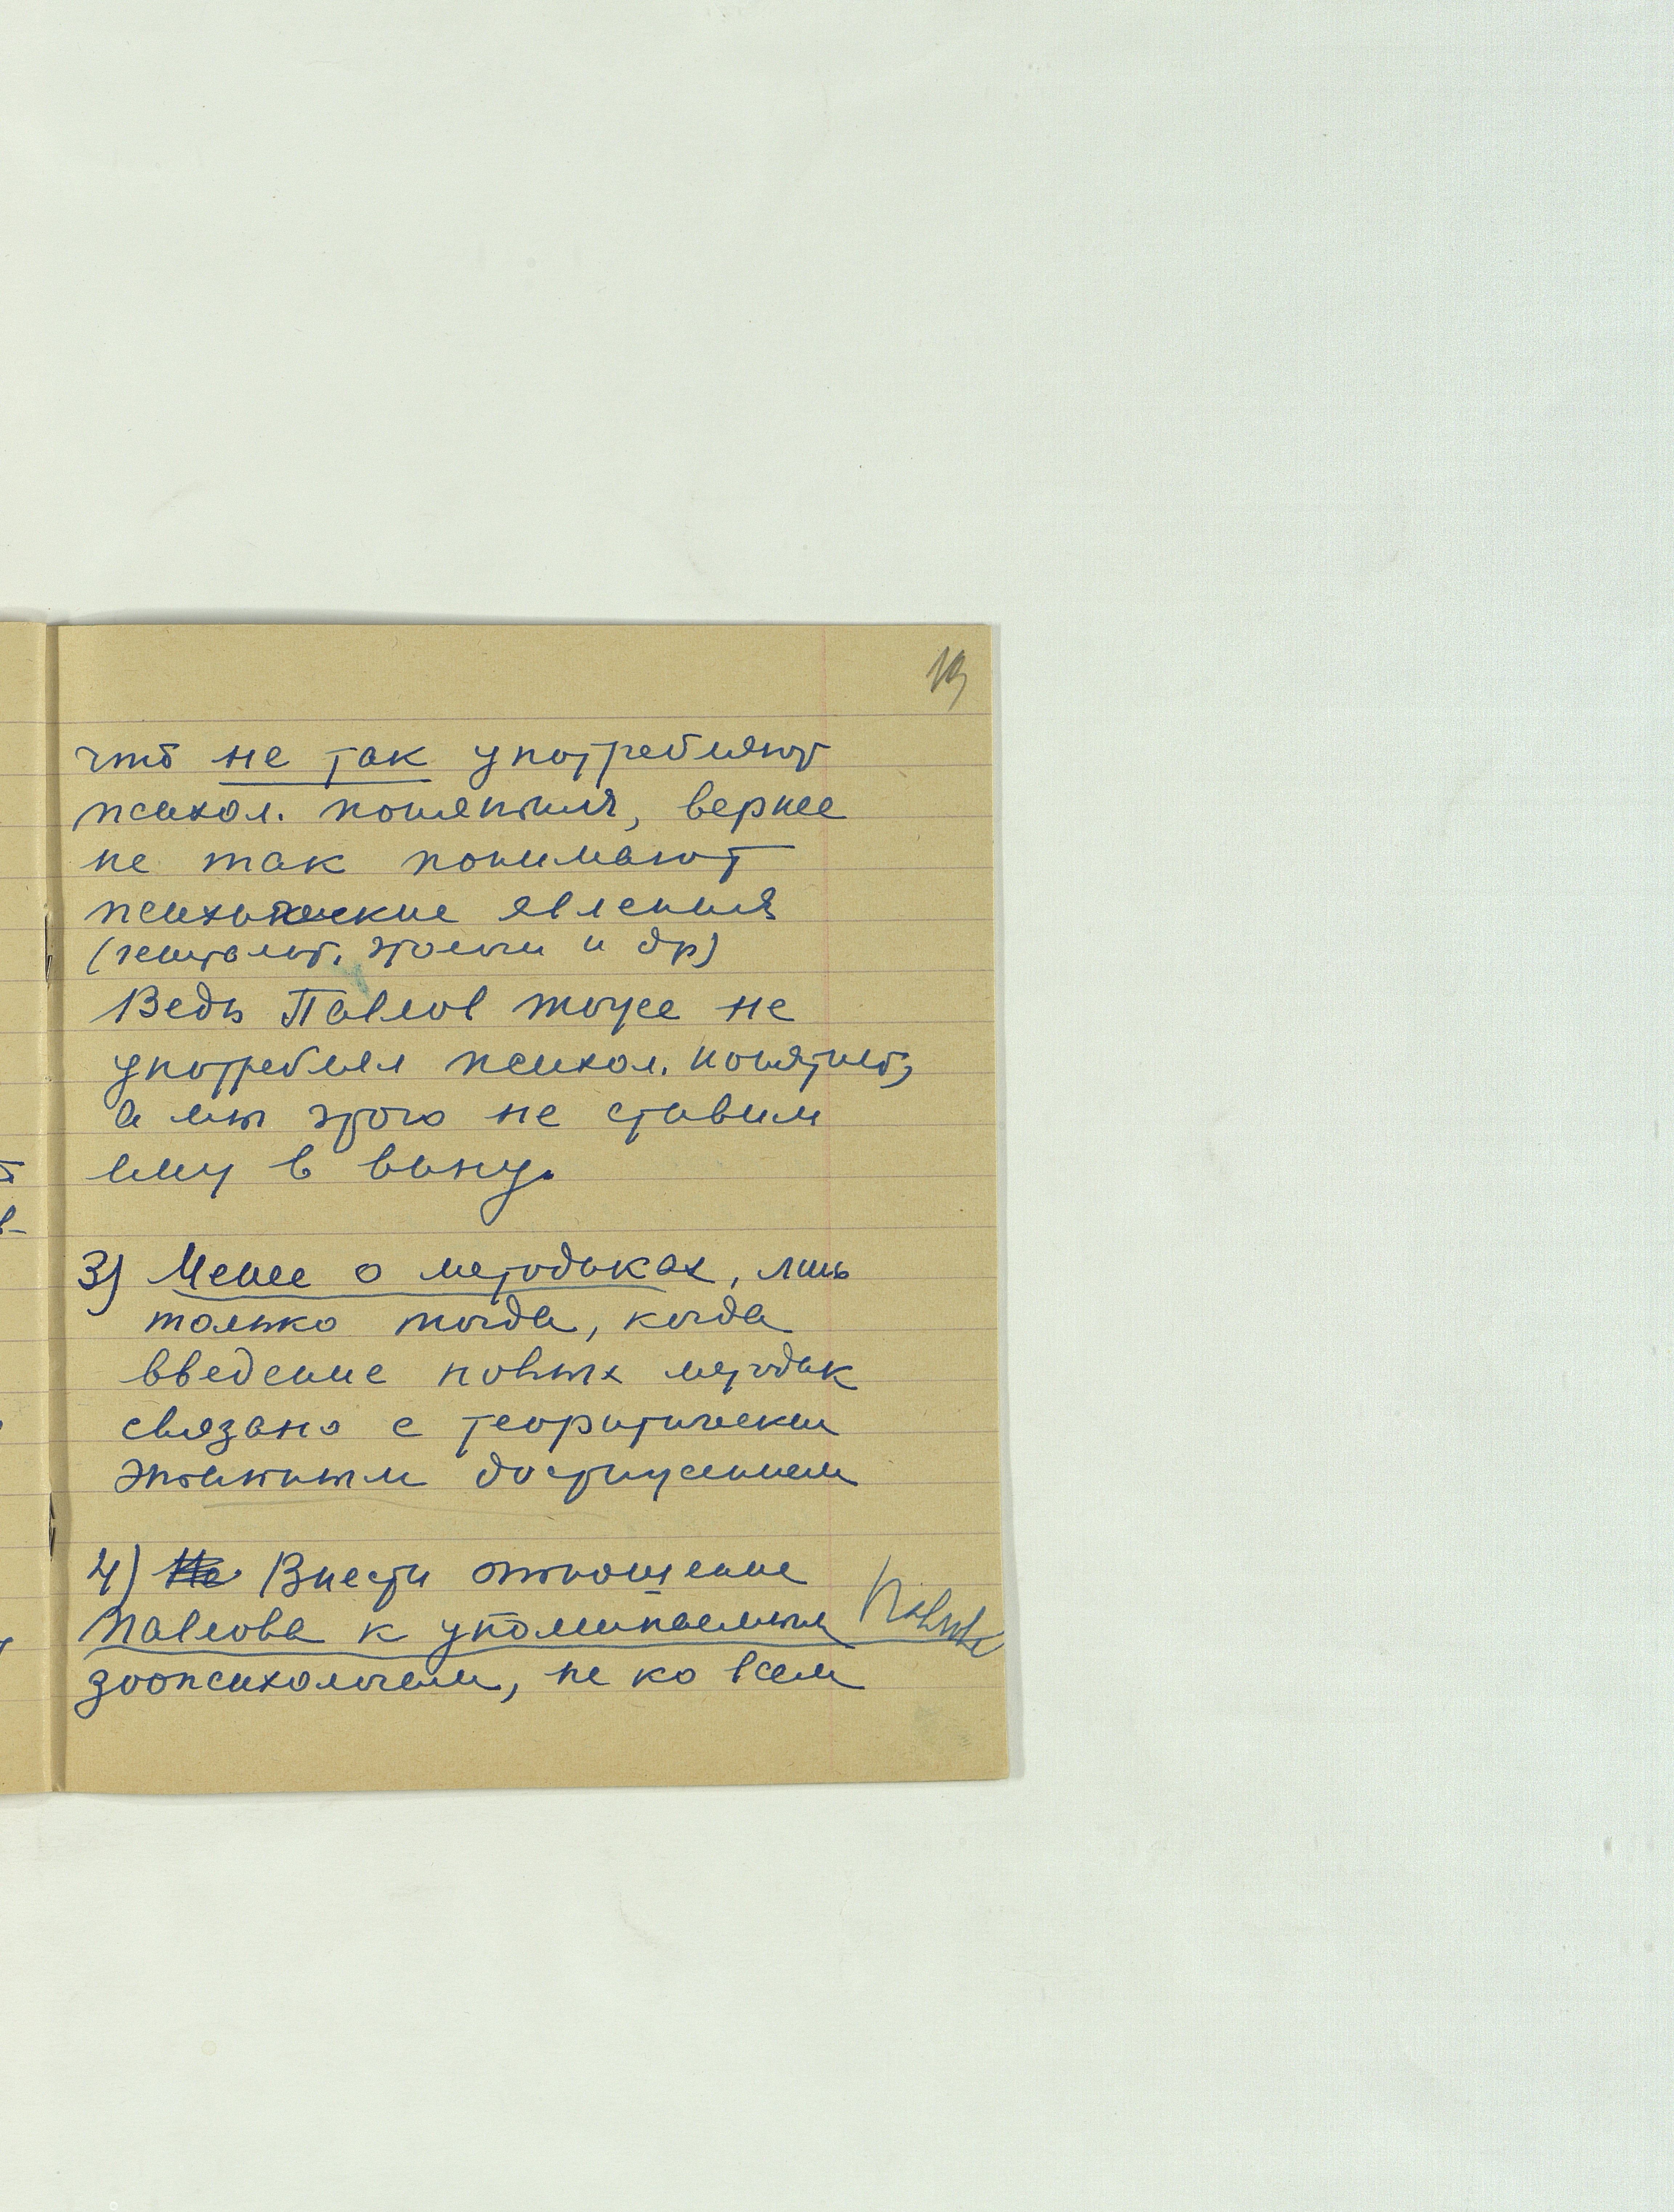 19
что не так употребляют
психол. понятия, вернее
не так понимают
психические явления
(гештальт, этологи и др)
Ведь Павлов тоже не
употреблял психол. понятий,
а мы этого не ставим
ему в вину.
3) Менее о методиках, лишь
только тогда, когда
введение новых методик
связано с теоретически
значимым достижением
4) Не Внести отношение
Павлова к упоминаемым
зоопсихологам, не ко всем